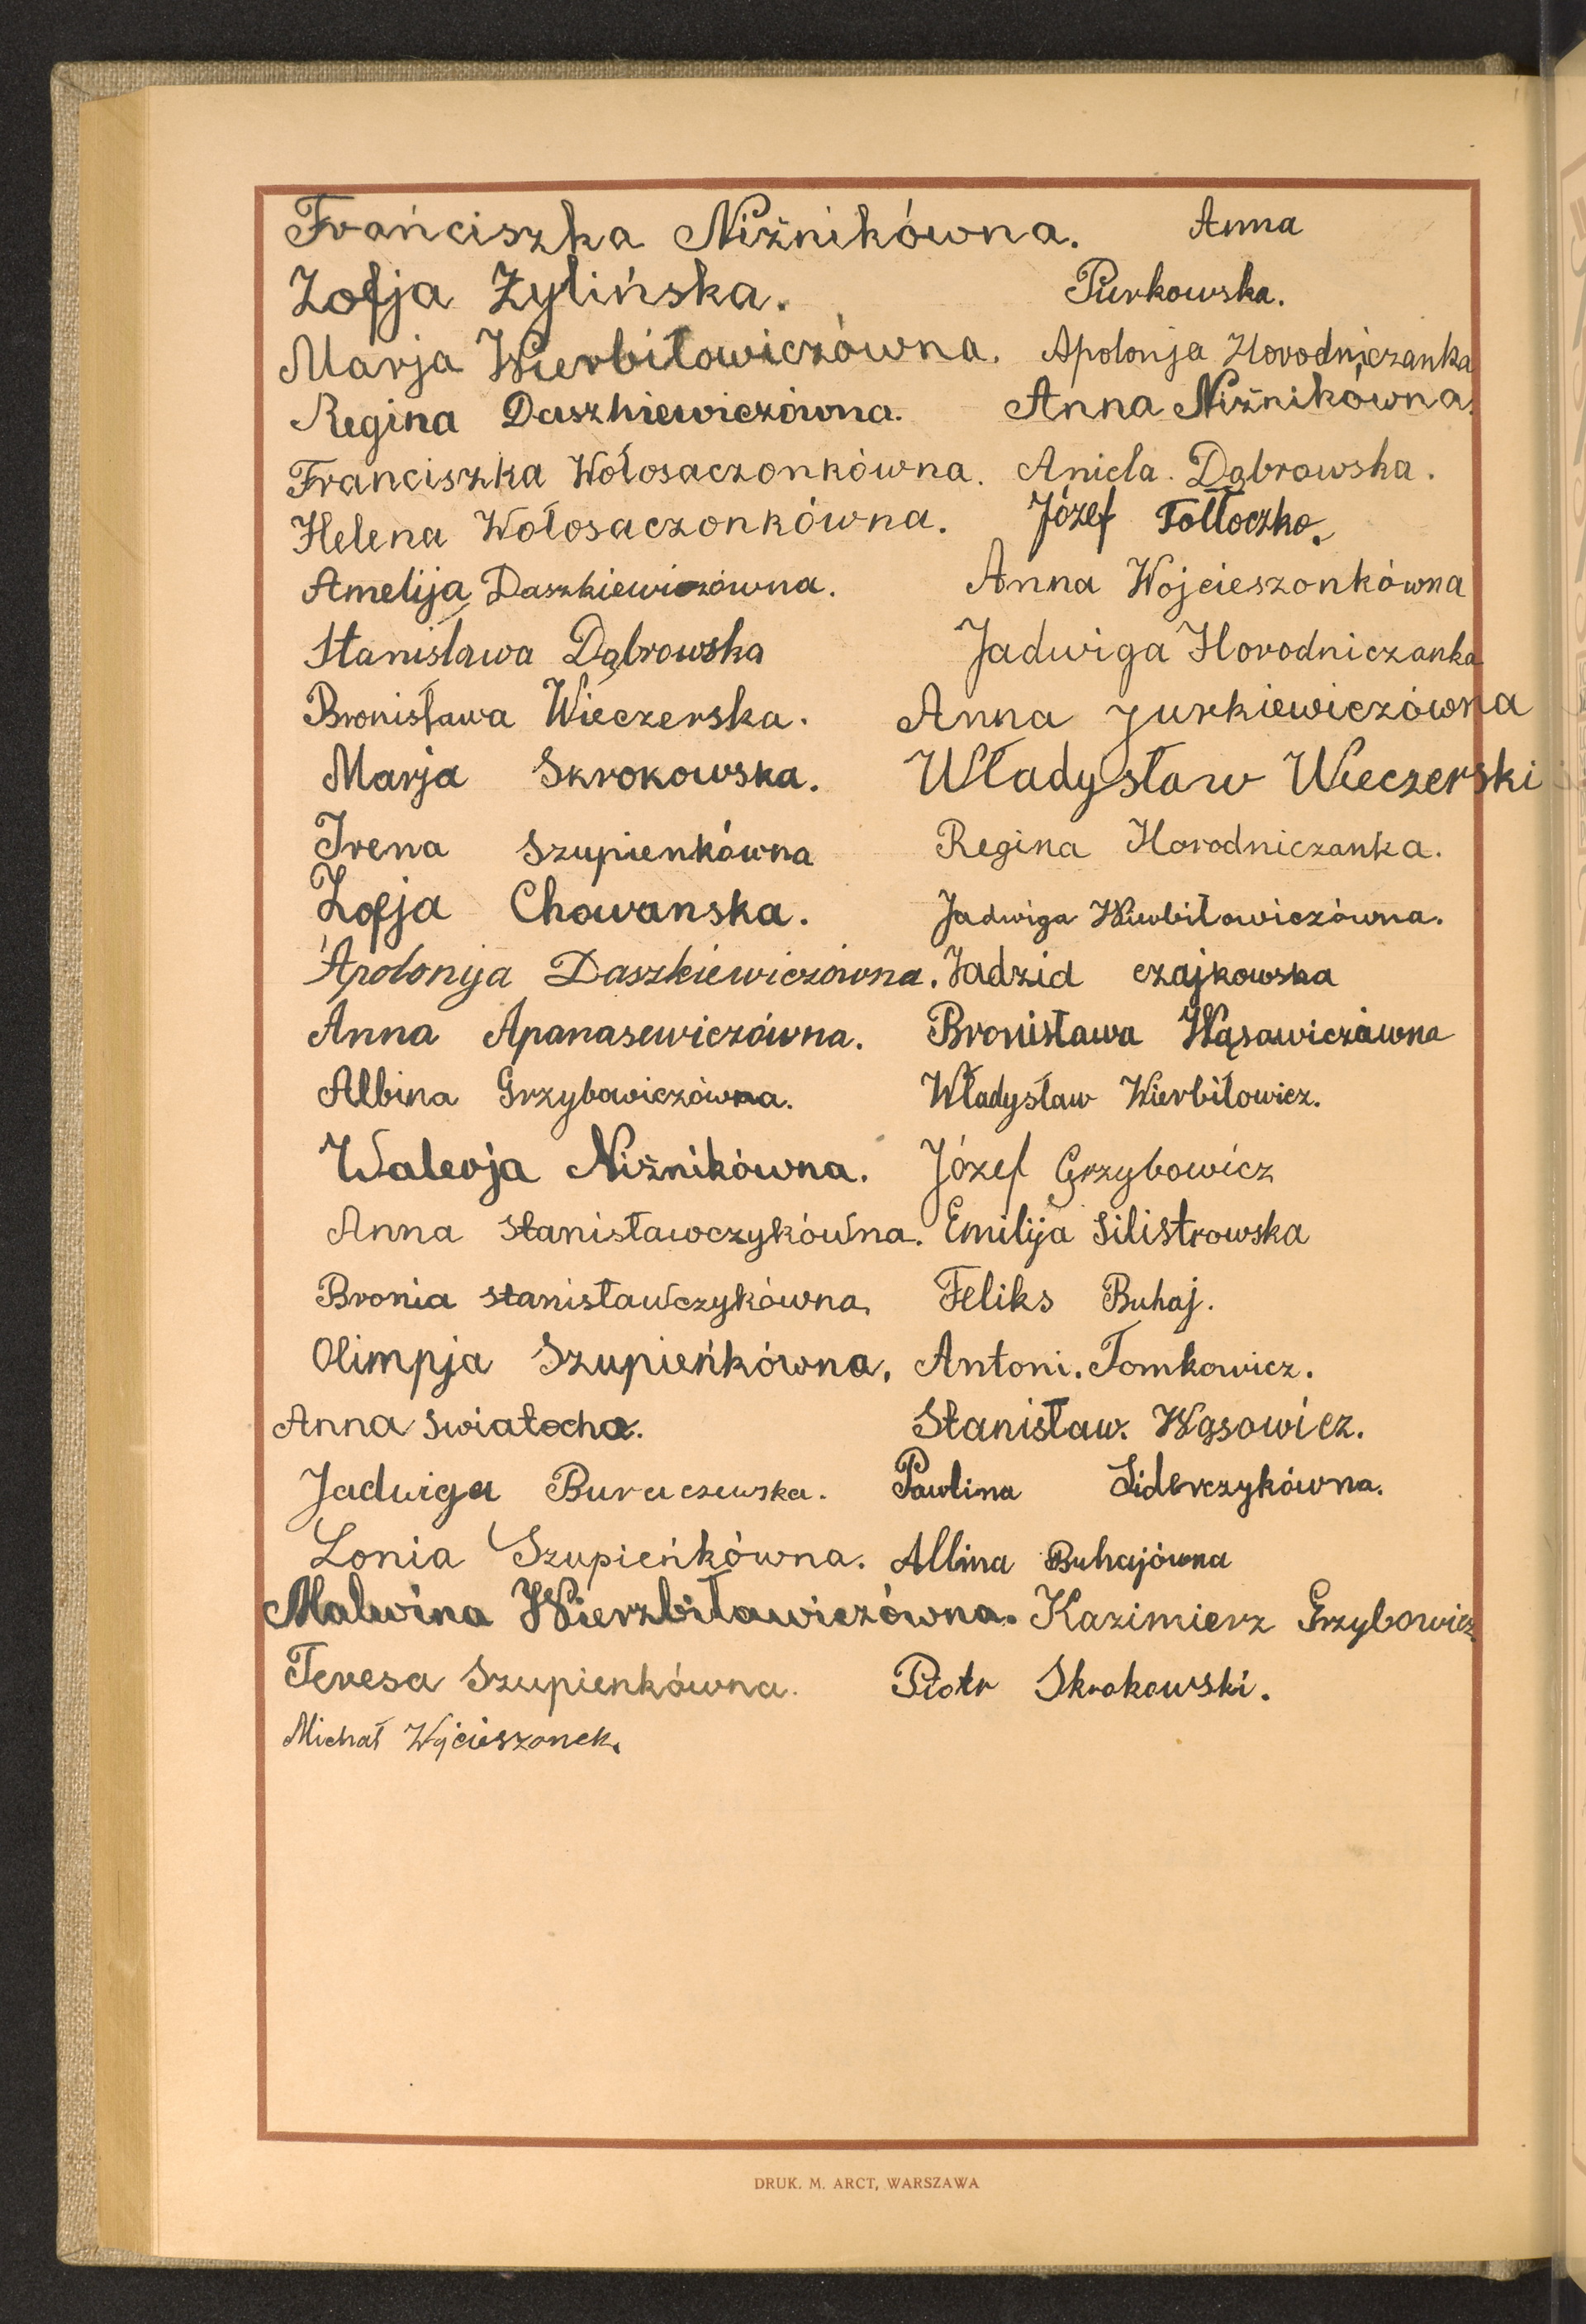 Frańciszka Niżnikówna. Anna
Zofja Żylińska. Purkowska.
Marja Wierbiłowiczówna. Apolonja Horodniczanka
Regina Daszkiewiczówna. Anna Niżnikówna.
Franciszka Wołosaczonkówna. Aniela. Dąbrowska.
Helena Wołosaczonkówna. Józef Tołłoczko.
Amelija Daszkiewiczówna. Anna Wojcieszonkówna
Stanisława Dąbrowska Jadwiga Horodniczanka
Bronisława Wieczerska. Anna Jurkiewiczówna
Marja Skrokowska. Władysław Wieczerski
Irena Szupienkówna Regina Horodniczanka.
Zofja Chowanska. Jadwiga Wierbiłowiczówna.
Apolonija Daszkiewiczówna. Jadzid czajkowska
Anna Apanasewiczówna. Bronisława Wąsawiczówna
Albina Grzybowiczówna. Władysław Wierbiłowicz.
Walerja Niżnikówna. Józef Grzybowicz
Anna Stanisławczykówna. Emilija Silistrowska
Bronia stanisławczykówna. Feliks Buhaj.
Olimpja Szupieńkówna. Antoni. Tomkowicz.
Anna Swiatocha. Stanisław. Wąsowicz.
Jadwiga Buraczewska. Pawlina Siderczykówna.
Lonia Szupieńkówna. Albina Buhajówna
Malwina Wierzbiławiczówna. Kazimierz Grzybowicz.
Teresa Szupienkówna. Piotr Skrokowski.
Michał Wojcieszonek.
DRUK. M. ARCT, WARSZAWA